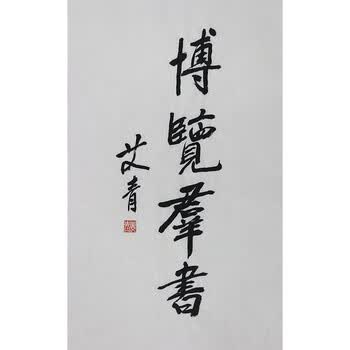 博覽羣書
艾青